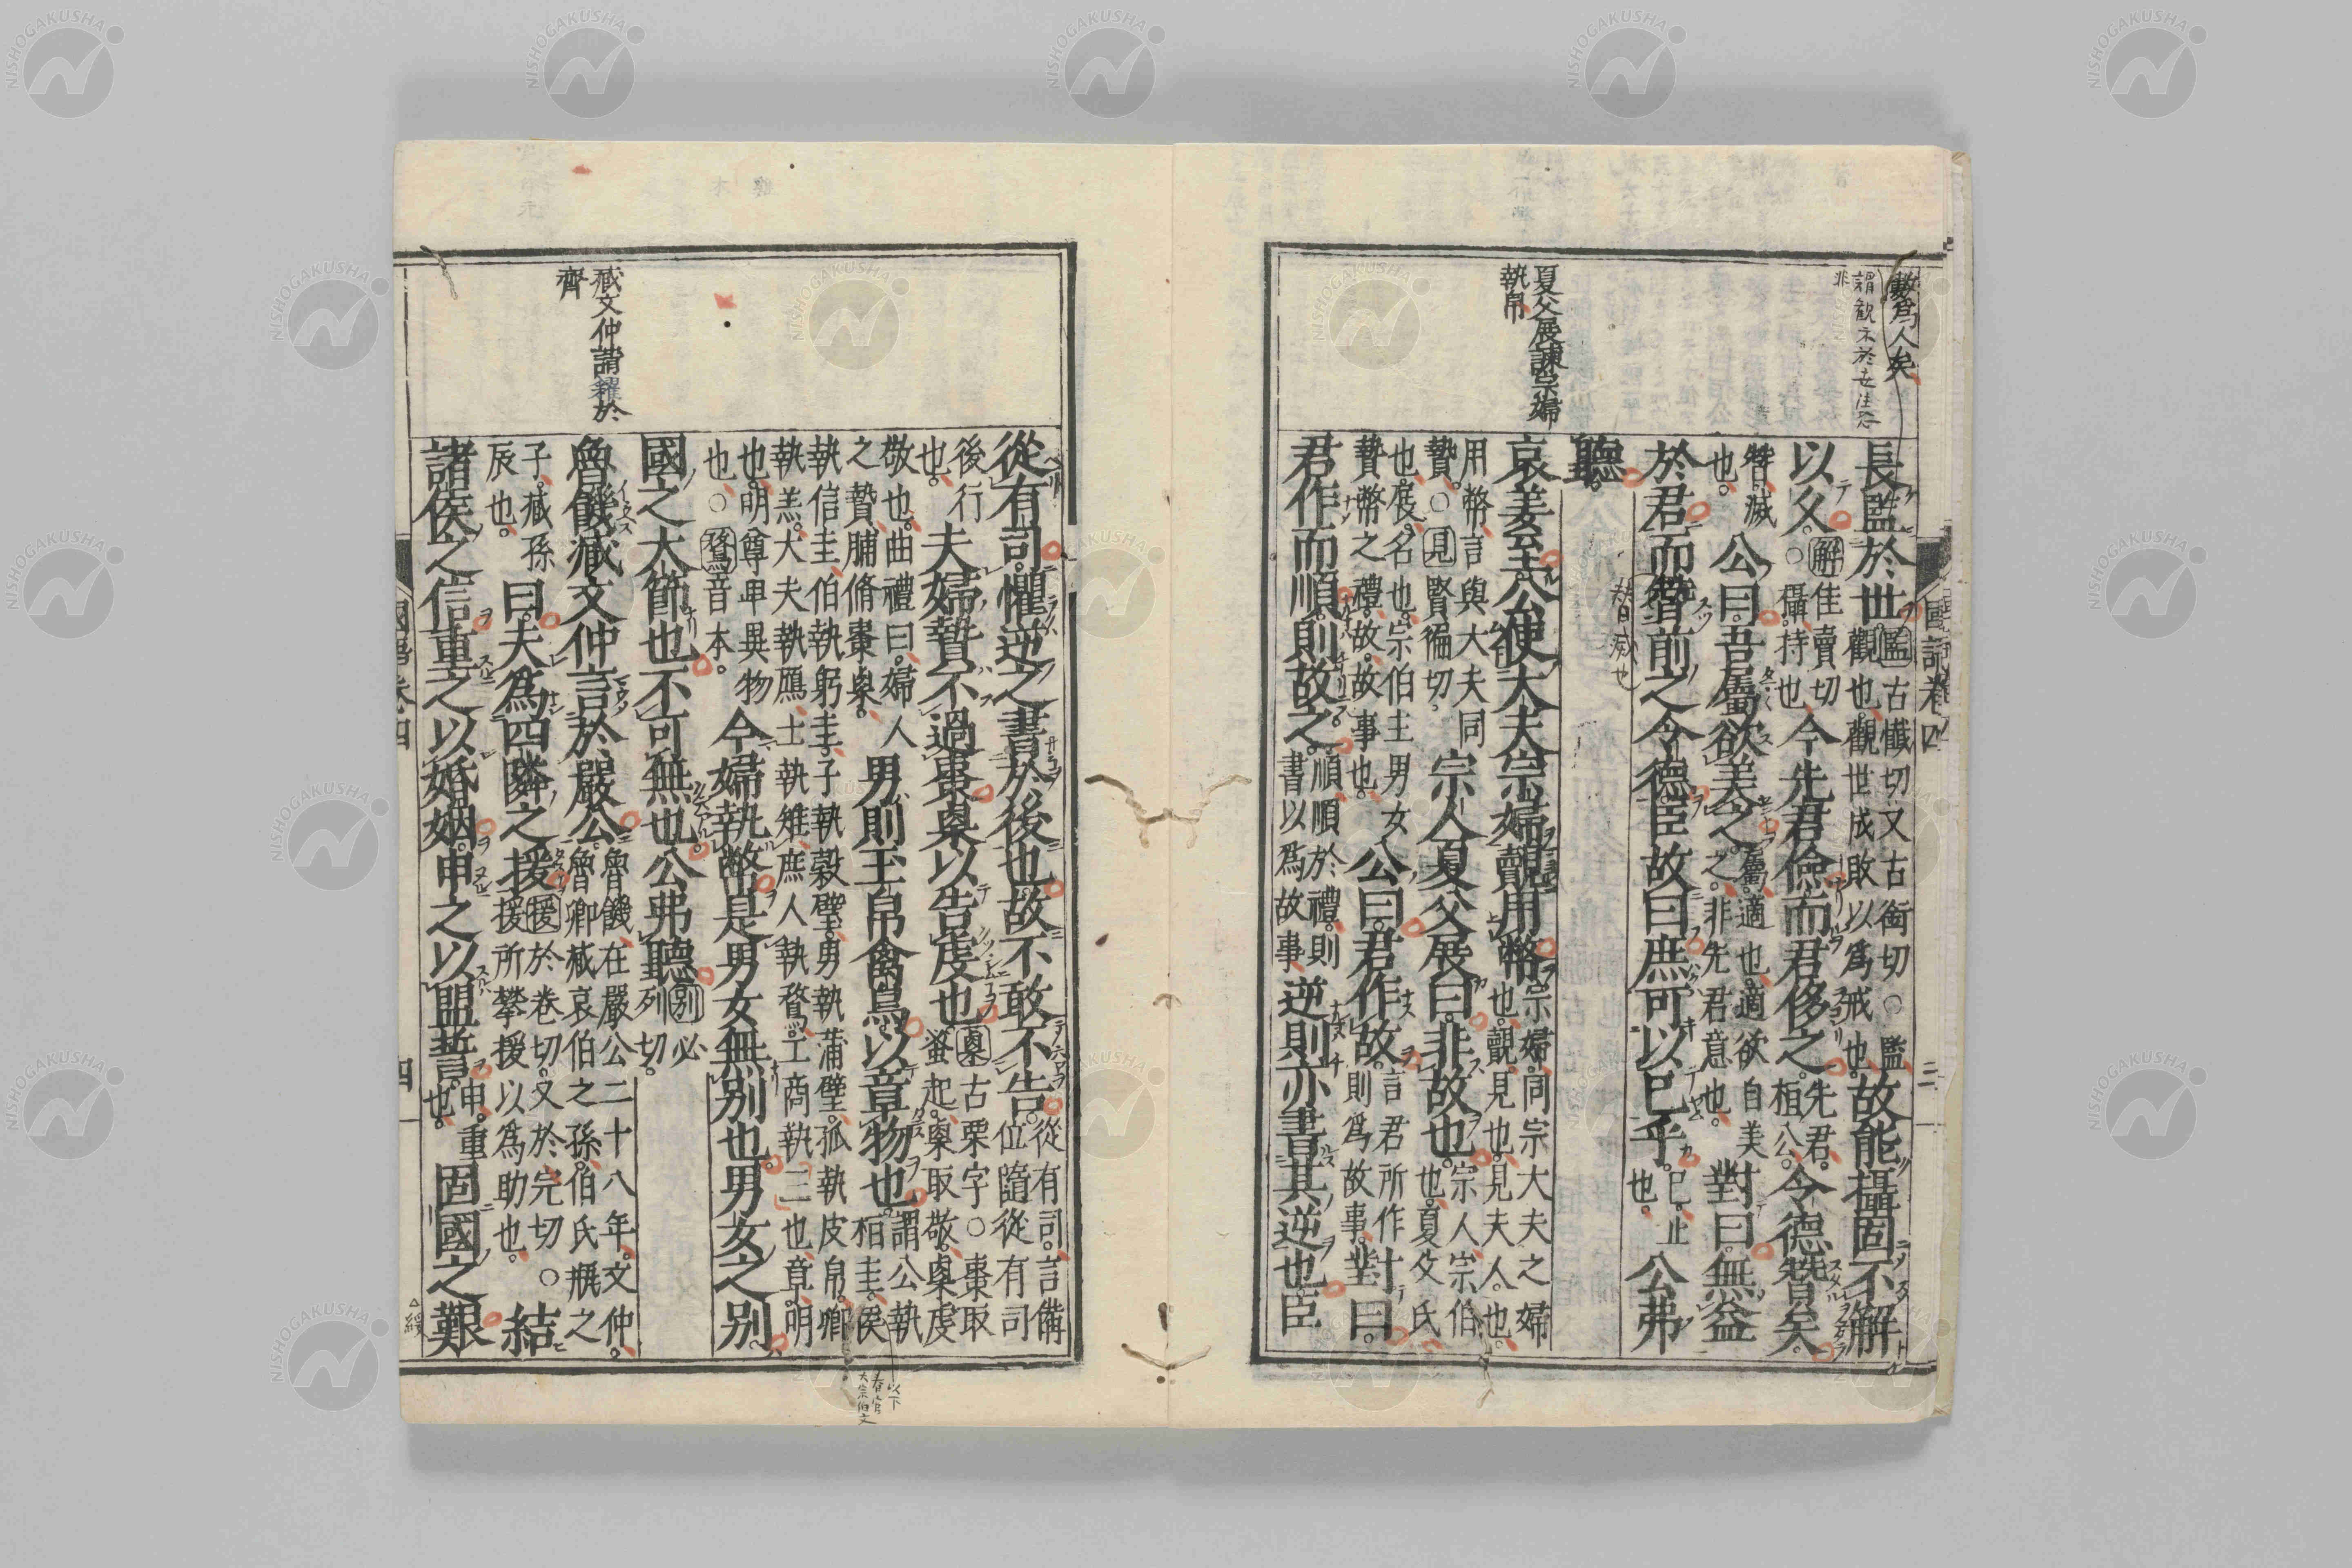 長監於世監古懺切又古銜切○監
觀也觀世成敗以爲戒也故能攝固不解
以久○解佳賣切攝持也今先君儉而君侈之先君桓公令德替矣
替滅也公曰吾屬欲美之屬適也適欲自美之非先君意也對曰無益
於君而替前之令德臣故曰庶可以已乎已止也公弗
聽
哀姜至公使大夫宗婦覿用幣宗婦同宗大夫之婦也覿見也見夫人也
用幣言與大夫同贄○見賢徧切宗人夏父展曰非故也宗人宗伯也夏父氏
也展名也宗伯主男女贄幣之禮故故事也公曰君作故言君所作則爲故事對曰
君作而順則故之順順於禮則書以爲故事逆則亦書其逆也臣
夏父展諫宗婦
執帛
國語卷四
三
從有司懼逆之書於後也故不敢不告從有司言備位隨從有司
後行也夫婦贄不過棗㮚以告虔也㮚古栗字○棗取蚤起㮚取敬㮚虔
敬也曲禮曰婦人之贄脯脩棗㮚男則玉帛禽鳥以章物也謂公執桓圭侯
執信圭伯執躬圭子執穀璧男執蒲璧孤執皮帛卿
執羔大夫執鴈士執雉庶人執鶩工商執雞也章明
也明尊卑異物也○鶩音木今婦執幣是男女無别也男女之别
國之大節也不可無也公弗聽别必列切
魯饑臧文仲言於嚴公魯饑在嚴公二十八年文仲魯卿臧哀伯之孫伯氏缾之
子臧孫辰也曰夫爲四隣之援援於卷切又於完切○援所攀援以爲助也結
諸侯之信重之以婚姻申之以盟誓申重也固國之艱
臧文仲請糴於
齊
以下
春官
大宗伯文
國語卷四
四